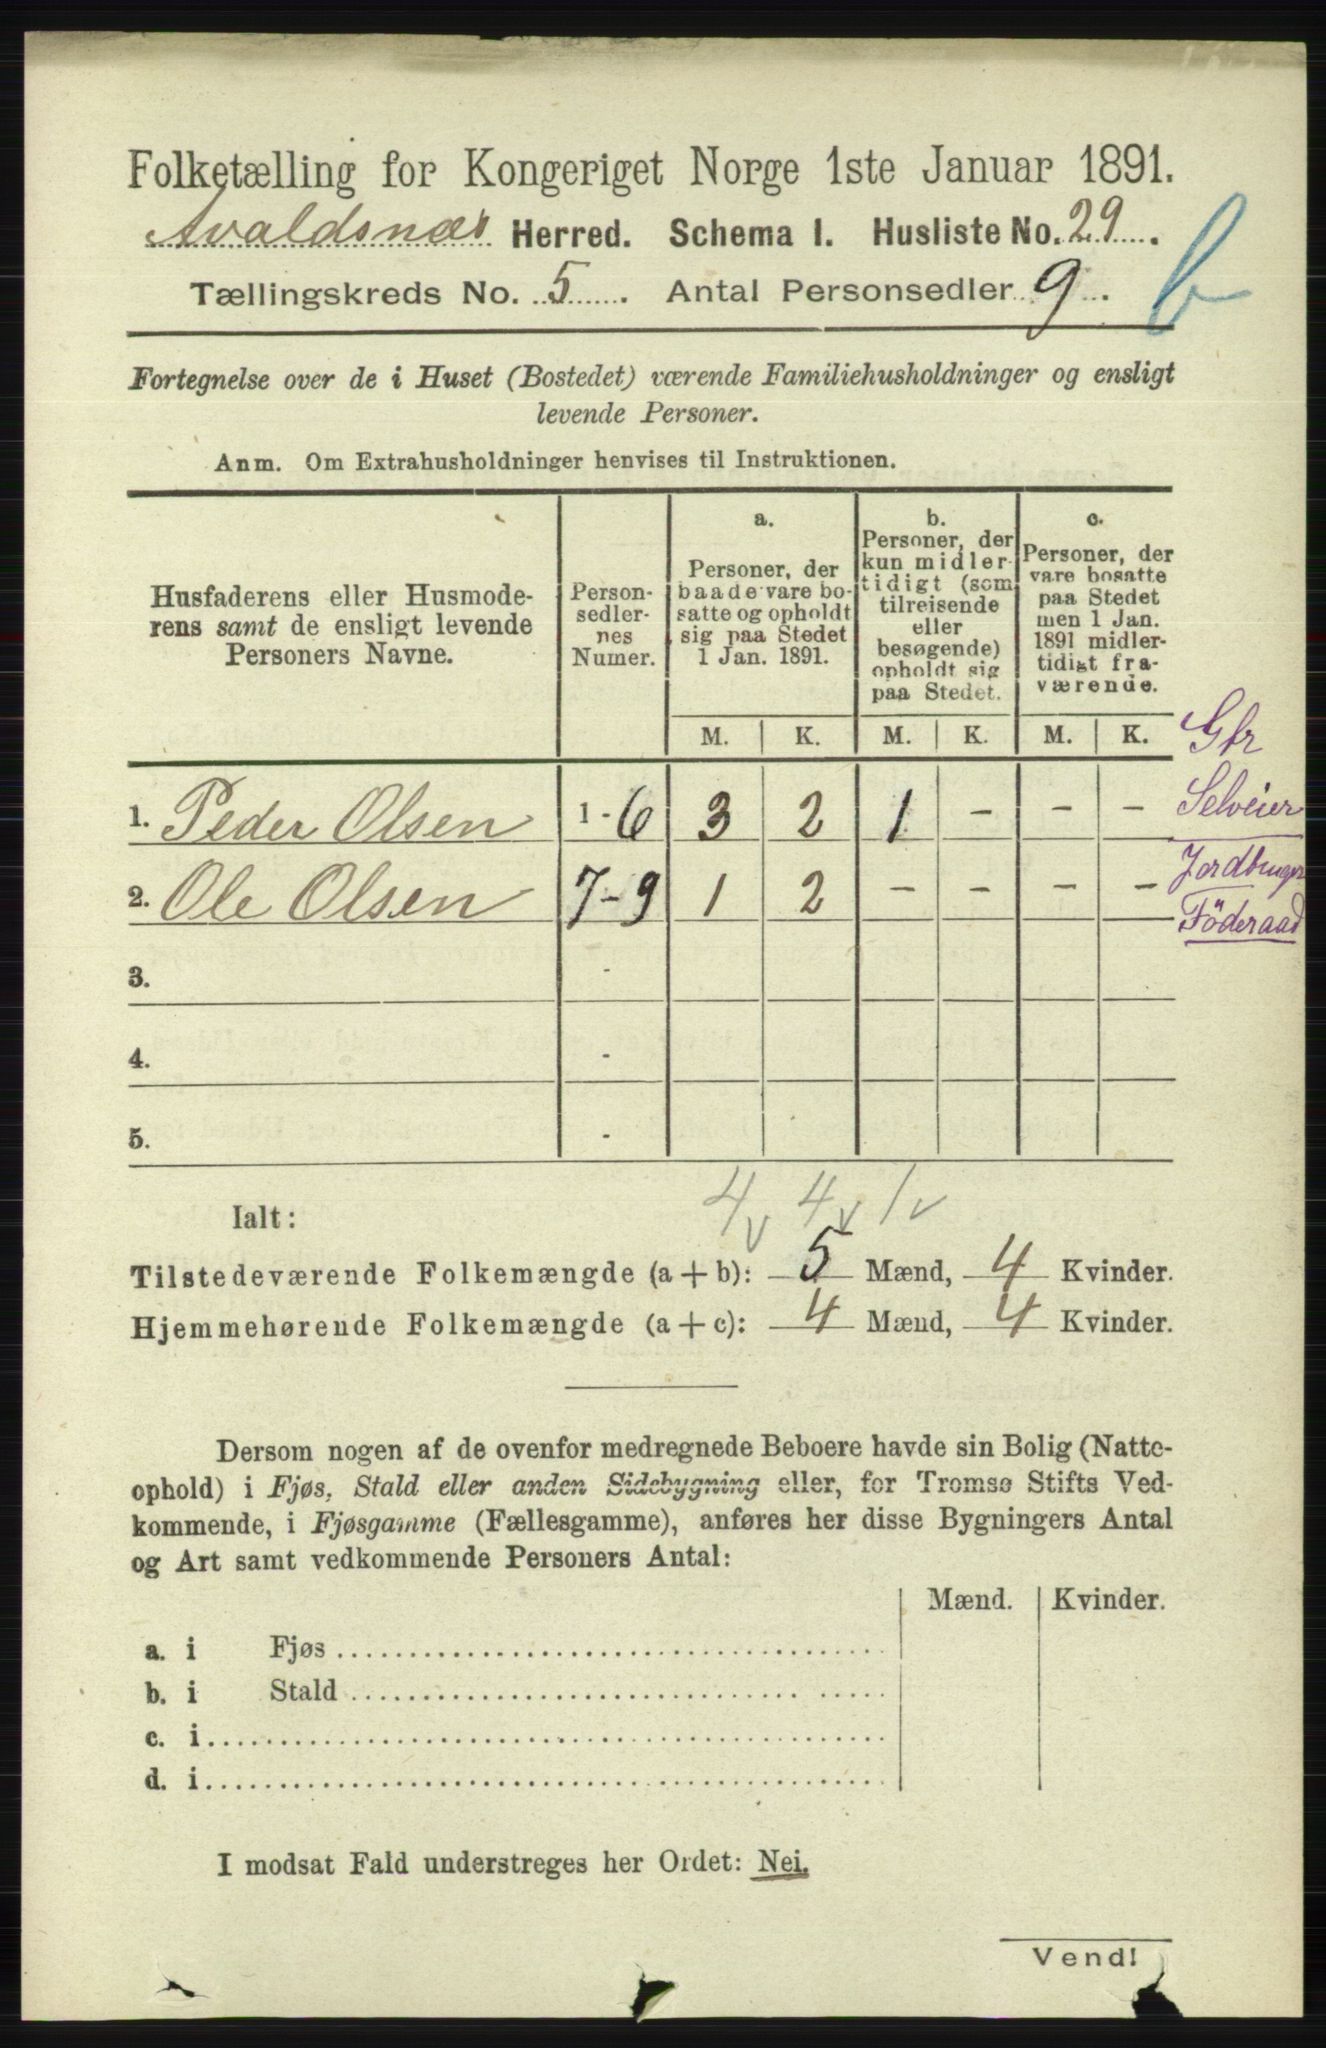 Folketælling for Kongeriget Norge 1ste Januar 1891.
Avaldsnæs Herred. Schema I. Husliste No. 29.
Tællingskreds No. 5. Antal Personsedler 9.
b
Fortegnelse over de i Huset (Bostedet) værende Familiehusholdninger og ensligt
levende Personer.
Anm. Om Extrahusholdninger henvises til Instruktionen.
Husfaderens eller Husmode-
rens samt de ensligt levende
Personers Navne.
Person-
sedler-
nes
Numer.
a.
Personer, der
baade vare bo-
satte og opholdt
sig paa Stedet
1 Jan. 1891.
b.
Personer, der
kun midler-
tidigt (som
tilreisende
eller
besøgende)
opholdt sig
paa Stedet.
c.
Personer, der
vare bosatte
paa Stedet
men 1 Jan.
1891 midler-
tidigt fra-
værende.
M. K. M. K. M. K.
Gfr
1. Peder Olsen 1-6 3 2 1 - - - Selveier
2. Ole Olsen 7-9 1 2 - - - - Jordbruger
Föderaad
3. -
4. -
5. -
4 4 1
Ialt:
Tilstedeværende Folkemængde (a+b): 5 Mænd, 4 Kvinder.
Hjemmehørende Folkemængde (a+c): 4 Mænd, 4 Kvinder.
Dersom nogen af de ovenfor medregnede Beboere havde sin Bolig (Natte-
ophold) i Fjøs, Stald eller anden Sidebygning eller, for Tromsø Stifts Ved-
kommende, i Fjøsgamme (Fællesgamme), anføres her disse Bygningers Antal
og Art samt vedkommende Personers Antal:
Mænd. Kvinder.
a. i Fjøs
b. i Stald
c. i
d. i
I modsat Fald understreges her Ordet: Nei.
Vend!